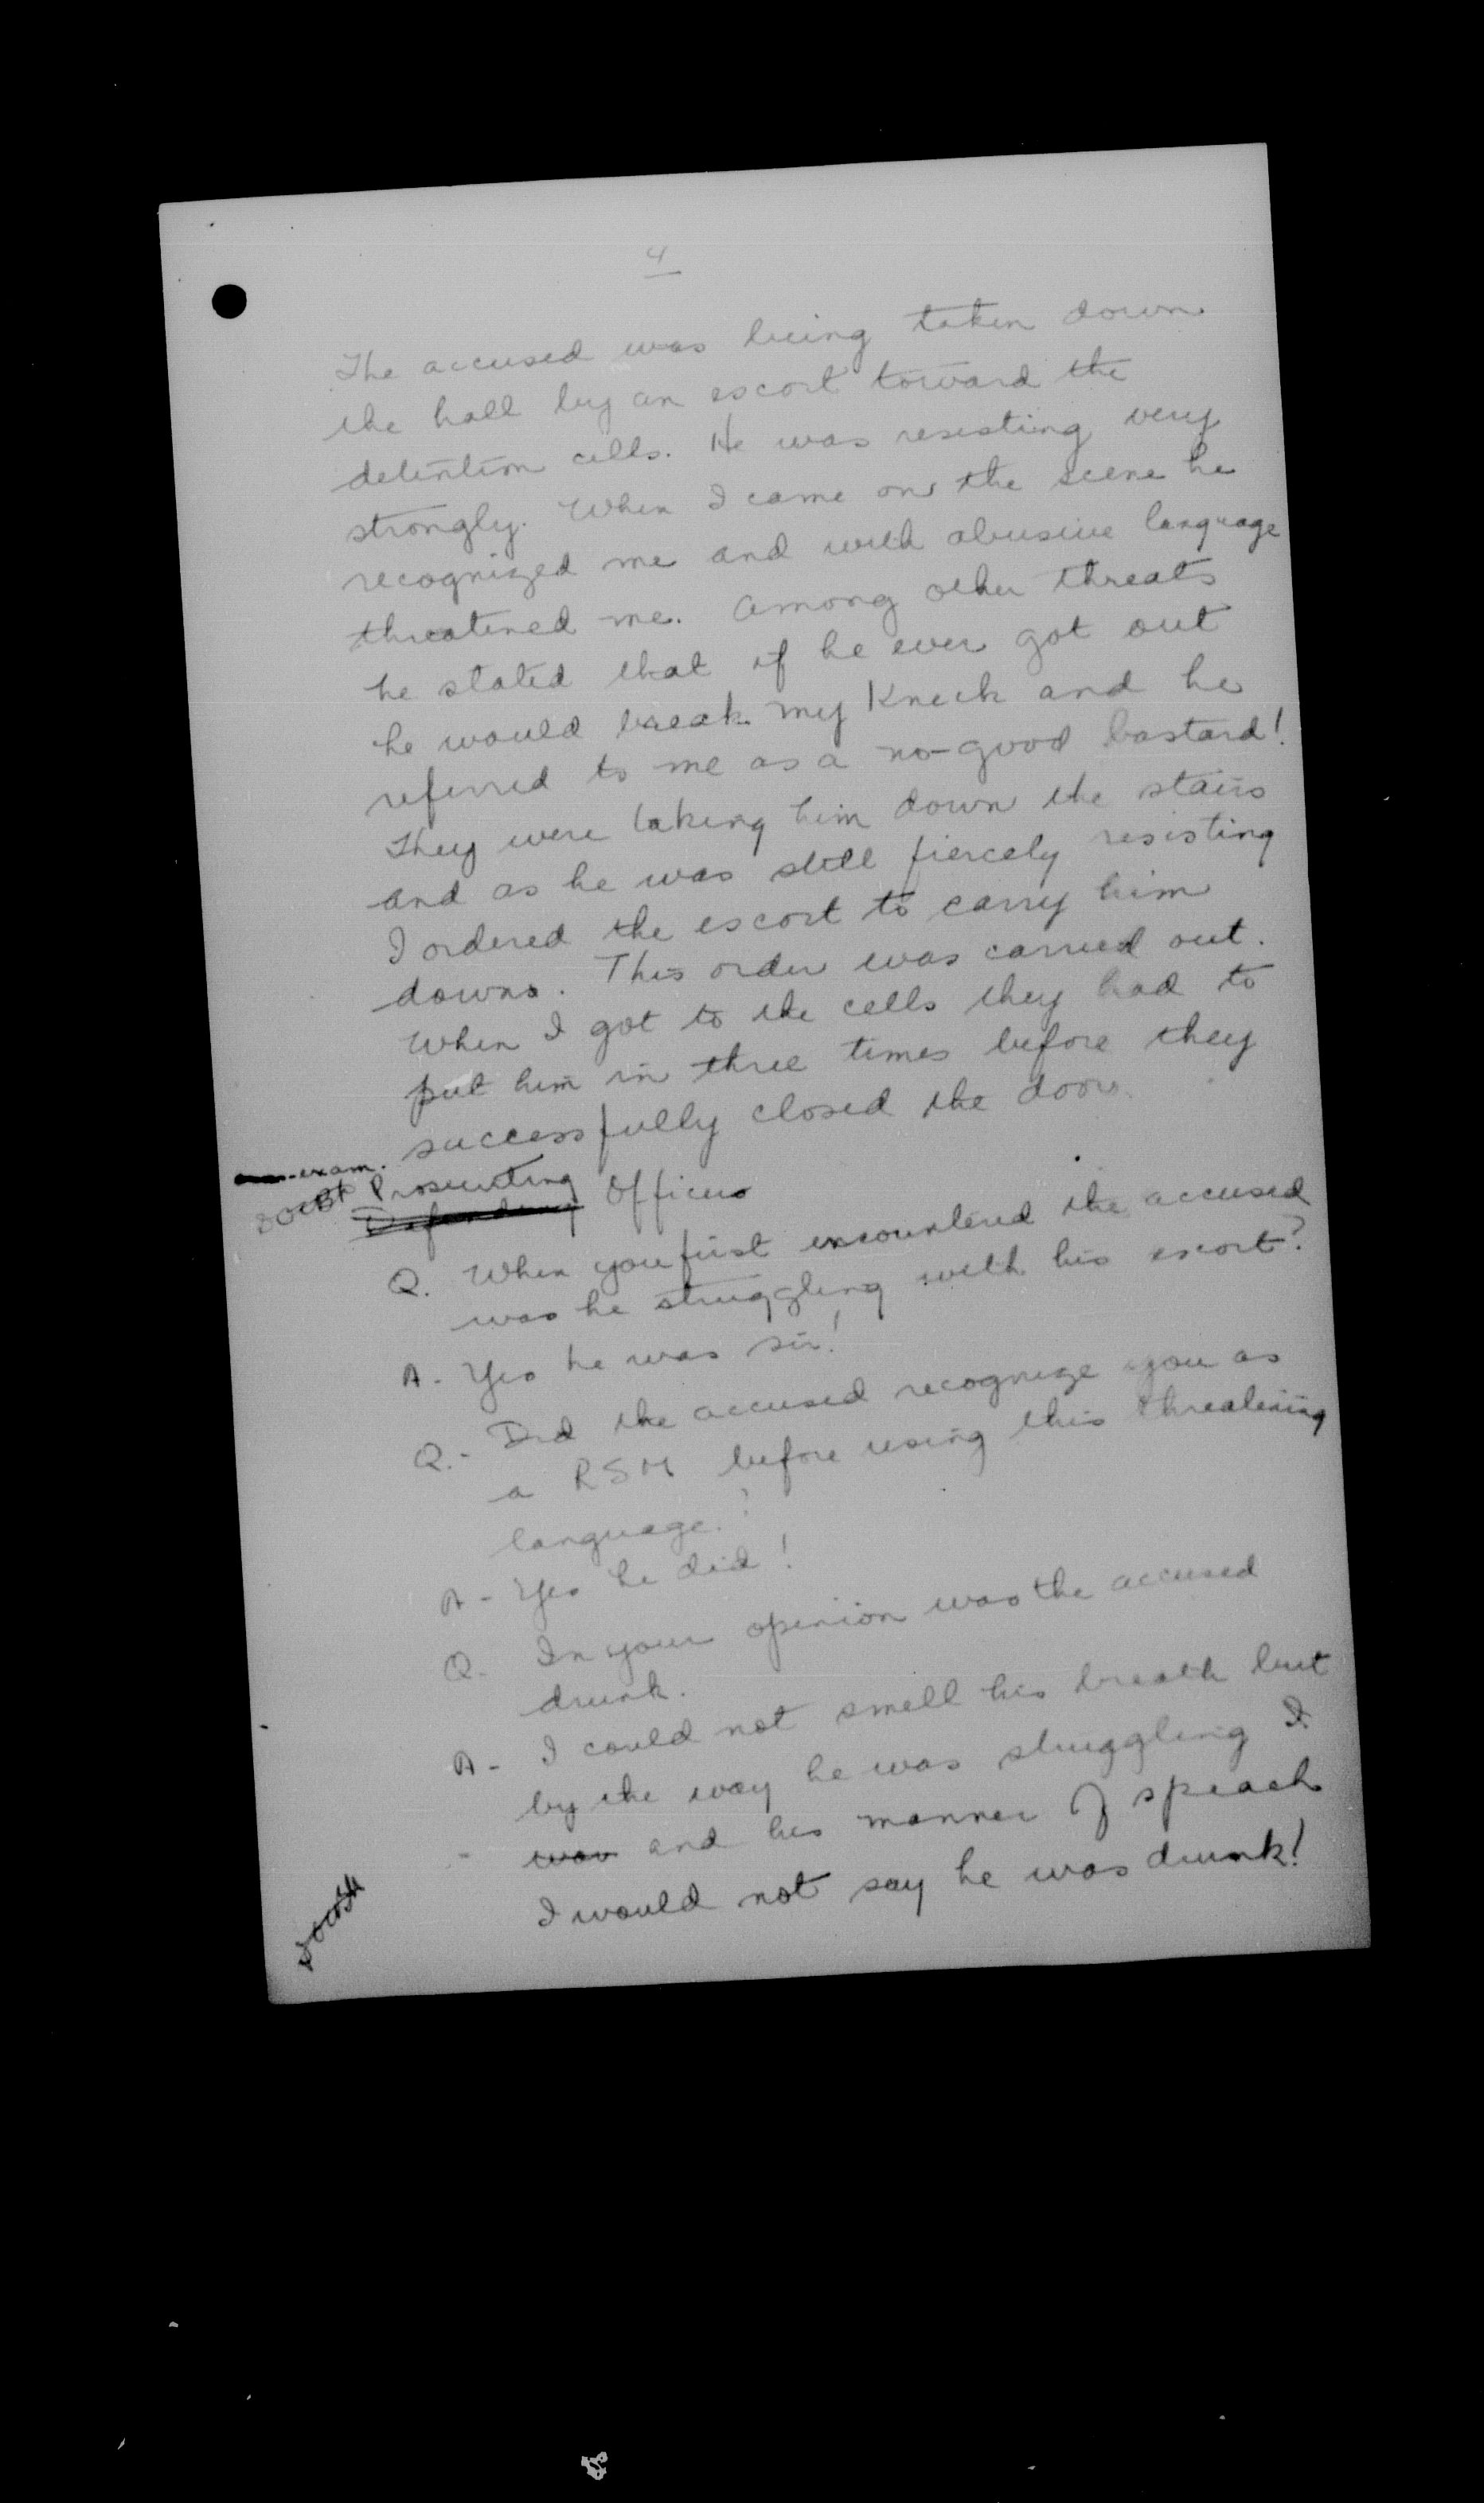 4
The accused was being taken down
the hall by an escort toward the
detention cells. He was resisting very
strongly. When I came on the scene he
recognized me and with abusive language
threatened me. Among other threats
he stated that if he ever got out
he would break my Kneck and he
referred to me as a no-good bastard!
They were taking him down the stairs
and as he was still fiercely resisting
I ordered the escort to carry him
down. This order was carried out.
When I got to the cells they had to
put him in three times before they
successfully closed the door.
exam.
Prosecuting
Defending Officer
Q. When you first encountered the accused
was he struggling with his escort?
A - Yes he was sir!
Q. - Did the accused recognize you as
a RSM before using this threatening
language.?
A - Yes he did!
Q. In your opinion was the accused
drunk.
A - I could not smell his breath but
by the way he was struggling I
and his manner of speach
I would not say he was drunk!